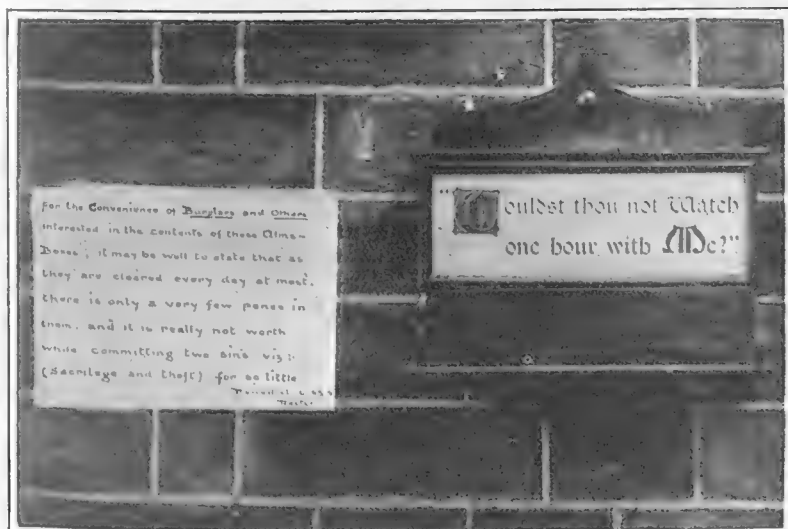 For the Convenience of Burglars and Others
interested in the contents of these Alms-
Boxes, it may be well to state that as
they are cleared every day at most,
there is only a very few pence in
them, and it is really not worth
while committing two sins viz:
(Sacrilege and theft) for so little
"Couldst thou not Watch
one hour with Me?"